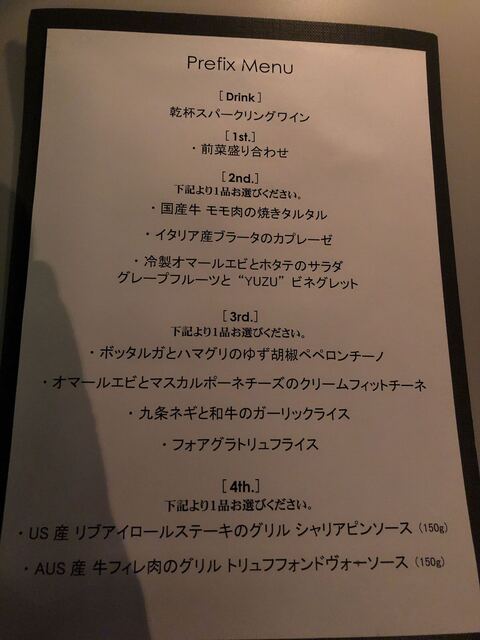 Prefix Menu
[ Drink ]
乾杯スパークリングワイン
[ 1st. ]
・前菜盛り合わせ
[ 2nd. ]
下記より1品お選びください。
・国産牛 モモ肉の焼きタルタル
・イタリア産ブラータのカプレーゼ
・冷製オマールエビとホタテのサラダ
グレープフルーツと “YUZU” ビネグレット
[ 3rd. ]
下記より1品お選びください。
・ボッタルガとハマグリのゆず胡椒ペペロンチーノ
・オマールエビとマスカルポーネチーズのクリームフィットチーネ
・九条ネギと和牛のガーリックライス
・フォアグラトリュフライス
[ 4th. ]
下記より1品お選びください。
・US 産 リブアイロールステーキのグリル シャリアピンソース（150g）
・AUS 産 牛フィレ肉のグリル トリュフフォンドヴォーソース（150g）